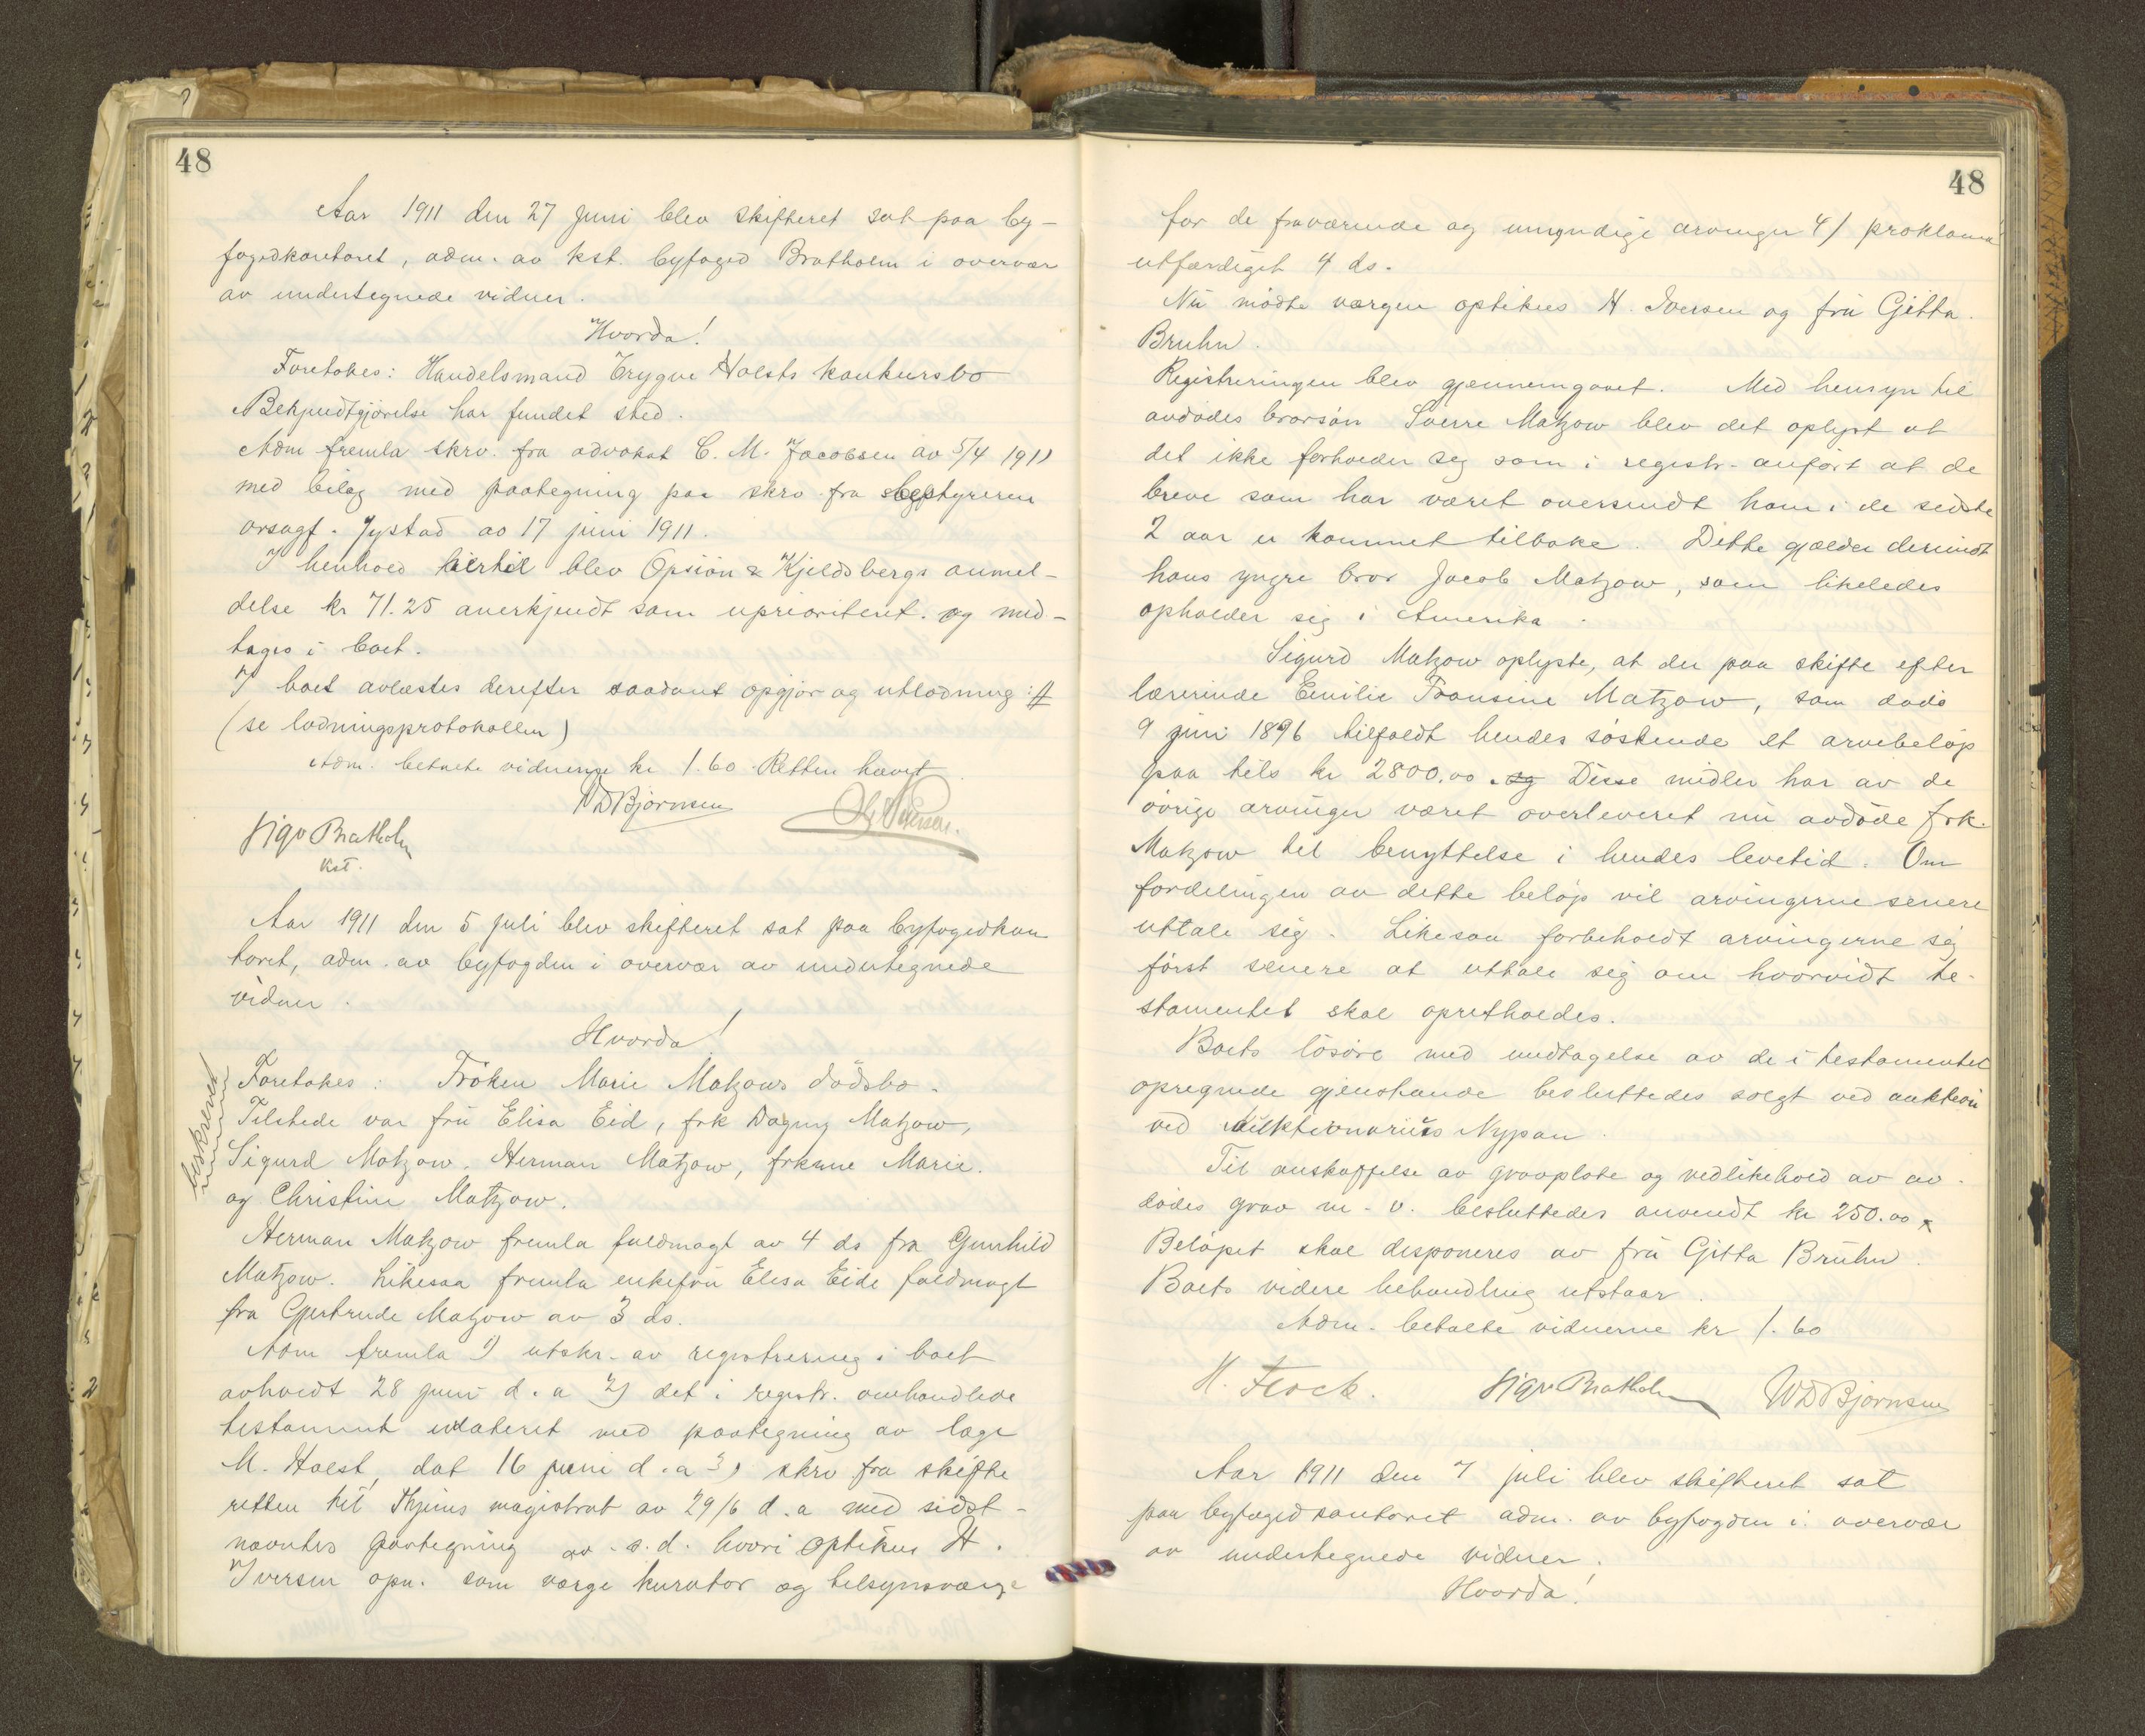 48
Aar 1911 den 27 juni blev skifteret sat paa by-
fogedkontoret, adm. av kst. byfoged Bratholm i overvær
av undertegnede vidner.
Hvorda!
Foretokes: Handelsmand Trygve Holsts konkursbo
Bekjendtgjörelse har fundet sted.
Adm fremla skrv. fra advokat C. M. Jacobsen av 5/4 1911
med bilag med paategning paa skrv fra bestyreren
orsagf. Jystad av 17 juni 1911.
I henhold hertil blev Opsiön & Kjeldsbergs anmel-
delse kr 71.25 anerkjendt som uprioritert. og med-
tages i boet.
I boet avlæstes derefter saadant opgjör og utlodning:
(se lodningsprotokollen)
Adm. betalte vidnerne kr 1.60 Retten hævet
WDBjörnsen
Sigv Bratholm
kst.
Aar 1911 den 5 juli blev skifteret sat paa byfogedkon
toret, adm. av byfogden i overvær av undertegnede
vidner.
Hvorda!
beskrevet
Foretokes: Fröken Marie Matzows dödsbo.
Tilstede var frü Elisa Eid, frk Dagny Matzow,
Sigurd Matzow. Herman Matzow, frknne Marie.
og Christine Matzow.
Herman Matzow fremla fuldmagt av 4 ds fra Gunhild
Matzow. Likesaa fremla enkefrü Elisa Eide fuldmagt
fra Gjertrude Matzow av 3 ds.
Adm fremla 1) utskr. av registrering i boet
avholdt 28 juni d. a 2) det i registr. omhandlede
testament udateret med paategning av læge
M. Holst, dat 16 juni d. a 3) skrv fra skifte
retten til Thjems magistrat av 29/6 d. a med sidst-
nævntes paategning av s. d. hvori optikus H.
Iversen opn. som værge kurator og tilsynsværge
48
for de fraværende og umyndige arvinger 4) proklama
utfærdiget 4 ds.
Nü mödte værgen optikus H. Iversen og frü Gitta
Bruhn.
Registreringen blev gjennemgaaet. Med hensyn til
avdödes brorsön Sverre Matzow blev det oplyst at
det ikke forholder seg som i registr. anfört at de
breve som har været oversendt ham i de sidste
2 aar er kommet tilbake. Dette gjælder derimot
hans yngre bror Jacob Matzow, som likeledes
opholder sig i Amerika.
Sigurd Matzow oplyste, at der paa skifte efter
lærerinde Emilie Fransine Matzow, som döde
9 juni 1896 tilfaldt hendes söskende et arvebelöp
paa tils kr 2800.00. og Disse midler har av de
övrige arvinger været overleveret nü avdöde frk.
Matzow til benyttelse i hendes levetid. Om
fordelingen av dette belöp vil arvingerne senere
uttale sig. Likesaa forbeholdt arvingerne sig
först senere at uttale sig om hvorvidt te-
stamentet skal opretholdes.
Boets lösöre med undtagelse av de i testamentet
opregnede gjenstande besluttedes solgt ved auktion
ved Auktionarius Nypan.
Til anskaffelse av gravplate og vedlikehold av av-
dödes grav m. v. besluttedes anvendt kr 250.00
Belöpet skal disponeres av frü Gitta Brühn.
Boets videre behandling utstaar.
Adm. betalte vidnerne kr 1.60
H. Flock. Sigv Bratholm WDBjörnsen
Aar 1911 den 7 juli blev skifteret sat
paa byfogedkontoret adm. av byfogden i overvær
av undertegnede vidner.
Hvorda!